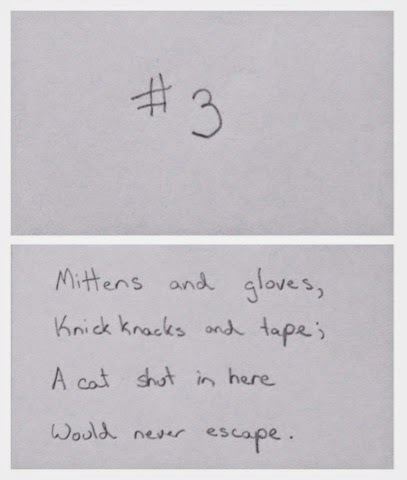 #3
Mittens and gloves,
Knick knacks and tape;
A cat shut in here
Would never escape.